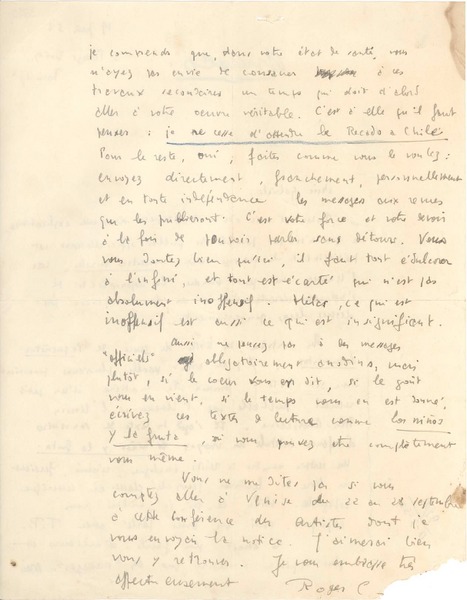 je comprends que, dans votre état de santé, vous
n'ayez pas envie de consacrer à ces
travaux secondaires un temps qui doit d'abord
aller à votre oeuvre véritable. C'est à elle qu'il faut
penser : je ne cesse d'attendre le Recado a Chile.
Pour le reste, oui, faites comme vous le voulez :
envoyez directement, franchement, personnellement
et en toute indépendance les messages aux revues
qui les publieront. C'est votre force et votre devoir
à la fois de pouvoir parler sans détour. Vous
vous doutez bien qu'ici, il faut tout édulcorer
à l'infini, et tout est écarté qui n'est pas
absolument inoffensif. Hélas, ce qui est
inoffensif est aussi ce qui est insignifiant.
aussi ne pensez pas à des messages
"officiels" obligatoirement anodins, mais
plutôt, si le coeur vous en dit, si le goût
vous en vient, si le temps vous en est donné,
écrivez ces textes de lecture comme los niños
y la fruta, où vous pouvez être complètement
vous même.
Vous ne me dites pas si vous
comptez aller à Venise du 22 au 28 septembre
à cette conférence des artistes dont je
vous envoyais la notice. J'aimerais bien
vous y retrouver. Je vous embrasse très
affectueusement
Roger C